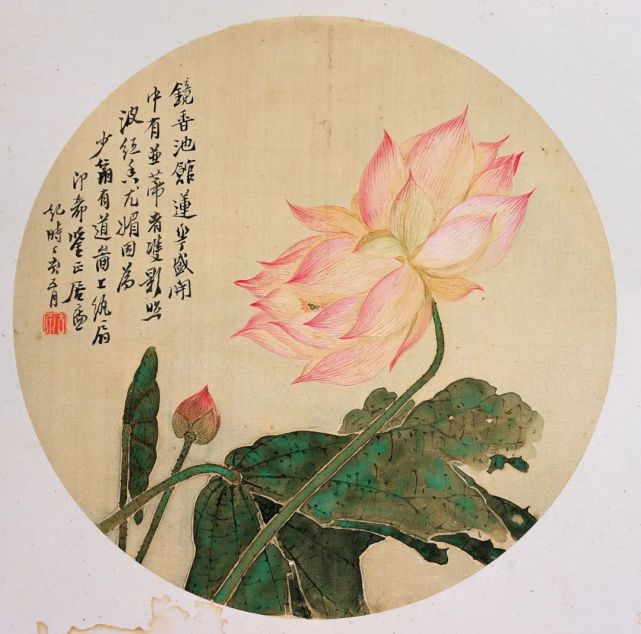 鏡香池館蓮華盛開
中有並蒂者雙影照
波紅香尤媚因為
少翁有道上紈扇
即希鑒正居廉
紀時乙亥五月